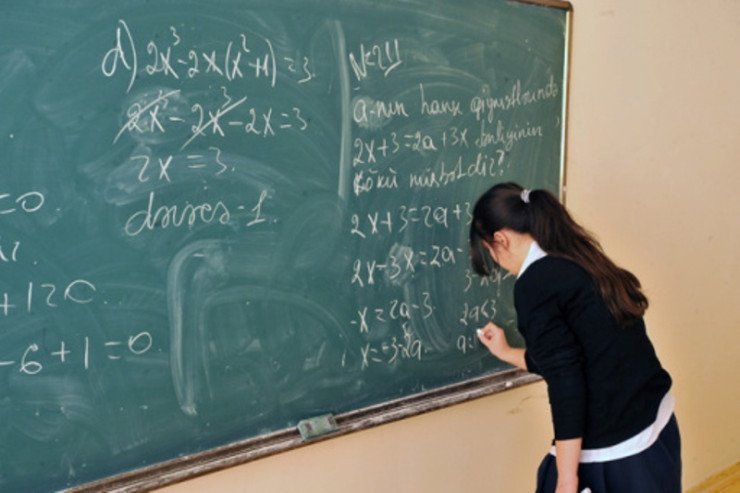 =0.
+1=0.
-6+1=0.
d) 2x³-2x(x²+1)=3.
2x³-2x³-2x=3
2x=3.
dərəcə-1.
a-nın hansı qiymətlərində
2x+3=2a+3x tənliyinin
kökü müsbətdir?
2x+3=2a+3
2x-3x=2a-
-x=2a-3
3-2a
2a<3